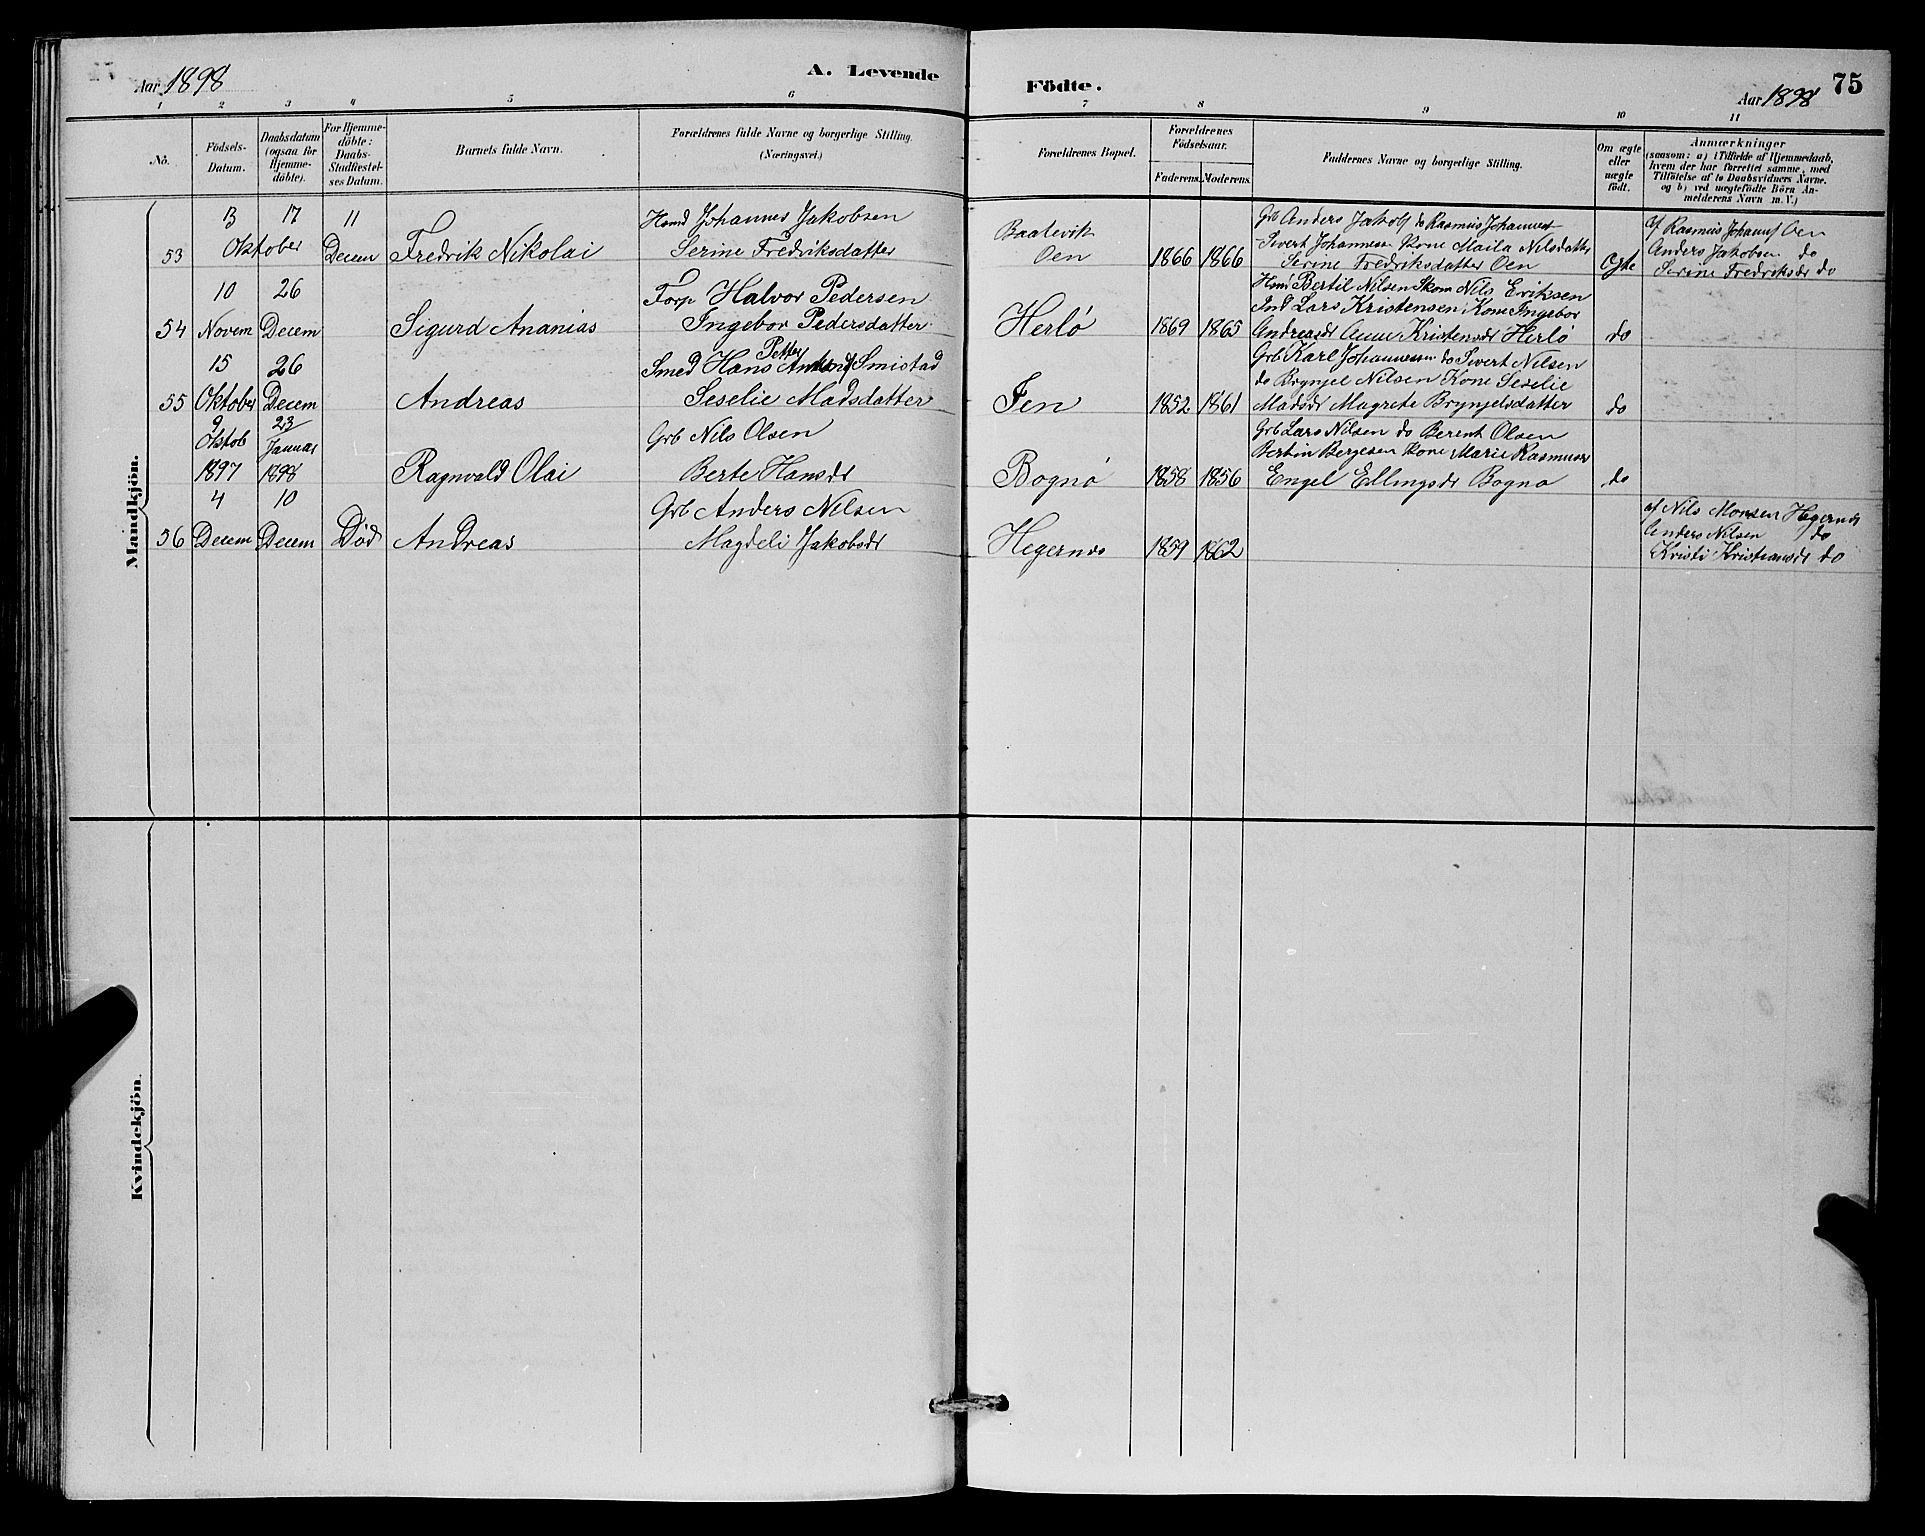 Aar 1898
A. Levende
Födte.
75
Aar 1898
1 2 3 4 5 6 7 8 9 10 11
No.
Födsels-
Datum.
Daabsdatum
(ogsaa for
Hjemme-
döbte).
For Hjemme-
döbte:
Daabs-
Stadfæstel-
ses Datum.
Barnets fulde Navn.
Forældrenes fulde Navne og borgerlige Stilling.
(Næringsvei.)
Forældrenes Bopæl.
Forældrenes
Födselsaar.
Faderens.
Moderens.
Faddernes Navne og borgerlige Stilling.
Om ægte
eller
uægte
födt.
Anmærkninger
(saasom: a) i Tilfælde af Hjemmedaab,
hvem der har forrettet samme, med
Tilföielse af to Daabsvidners Navne,
og b) ved uægtefödte Börn An-
melderens Navn m. V.)
Mandkjön.
53
13
Oktober
17
11
Decem
Fredrik Nikolai
Hmd Johannes Jakobsen
Serine Fredriksdatter
Baatevik
Oen
1866 1866
Grb Anders Jakobs do Rasmus Johannes
Sivert Johannesen Kone Maila Nilsdatter
Serine Fredriksdatter Oen
Ægte
af Rasmus Johans Oen
Anders Jakobsen do
Serine Fredriksdr do
54
10
Novem
26
Decem
Sigurd Ananias
Forp Halvor Pedersen
Ingebor Pedersdatter
Herlø
1869 1865
Hmd Bertil Nilsen Skom Nils Eriksen
Ind Lars Kristensen Kone Ingebor
Andreasdr Anne Kristensdr Herlø
do
55
15
Oktober
26
Decem
Andreas
Petter
Smed Hans Smistad
Seselie Madsdatter
Fen
1852 1861
Grb Karl Johannessen do Sivert Nilsen
do Brynjel Nilsen Kone Seselie
Madsdr Magrete Brynjelsdatter
do
9
Oktob
1897
23
Januar
1898
Ragnvald Olai
Grb Nils Olsen
Berte Hansdr
Bognø
1858 1856
Grb Lars Nilsen do Berent Olsen
Bertin Bergesen Kone Marie Rasmusdr
Engel Ellingsdr Bognø
do
56
4
Decem
10
Decem
Død
Andreas
Grb Anders Nilsen
Magdeli Jakobsdr
Hegernes
1859 1862
af Nils Monsen Hegernes
Anders Nilsen do
Kristi Kristiansdr do
Kvindekjön.